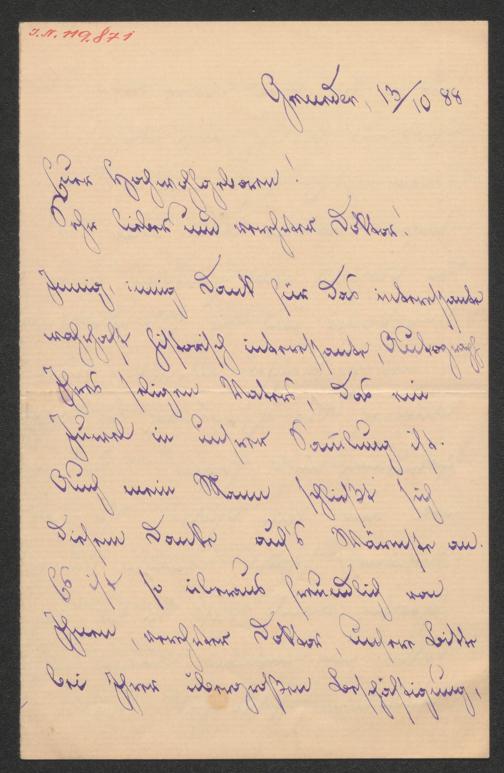 I.N. 119.871
Gmunden, 13/10 88
Euer Hochwohlgeboren!
Sehr lieber und verehrter Doktor!
Innig, innig Dank für das interessante
wahrhaft historisch interessante, Autograph
Ihres seligen Vaters, das ein
Juwel in unsrer Samlung ist.
Auch mein Mann schließt sich
diesem Danke auf's Wärmste an.
Es ist so überaus freundlich von
Ihnen, verehrter Doktor, unsere Bitte
bei Ihrer übergroßen Beschäftigung,